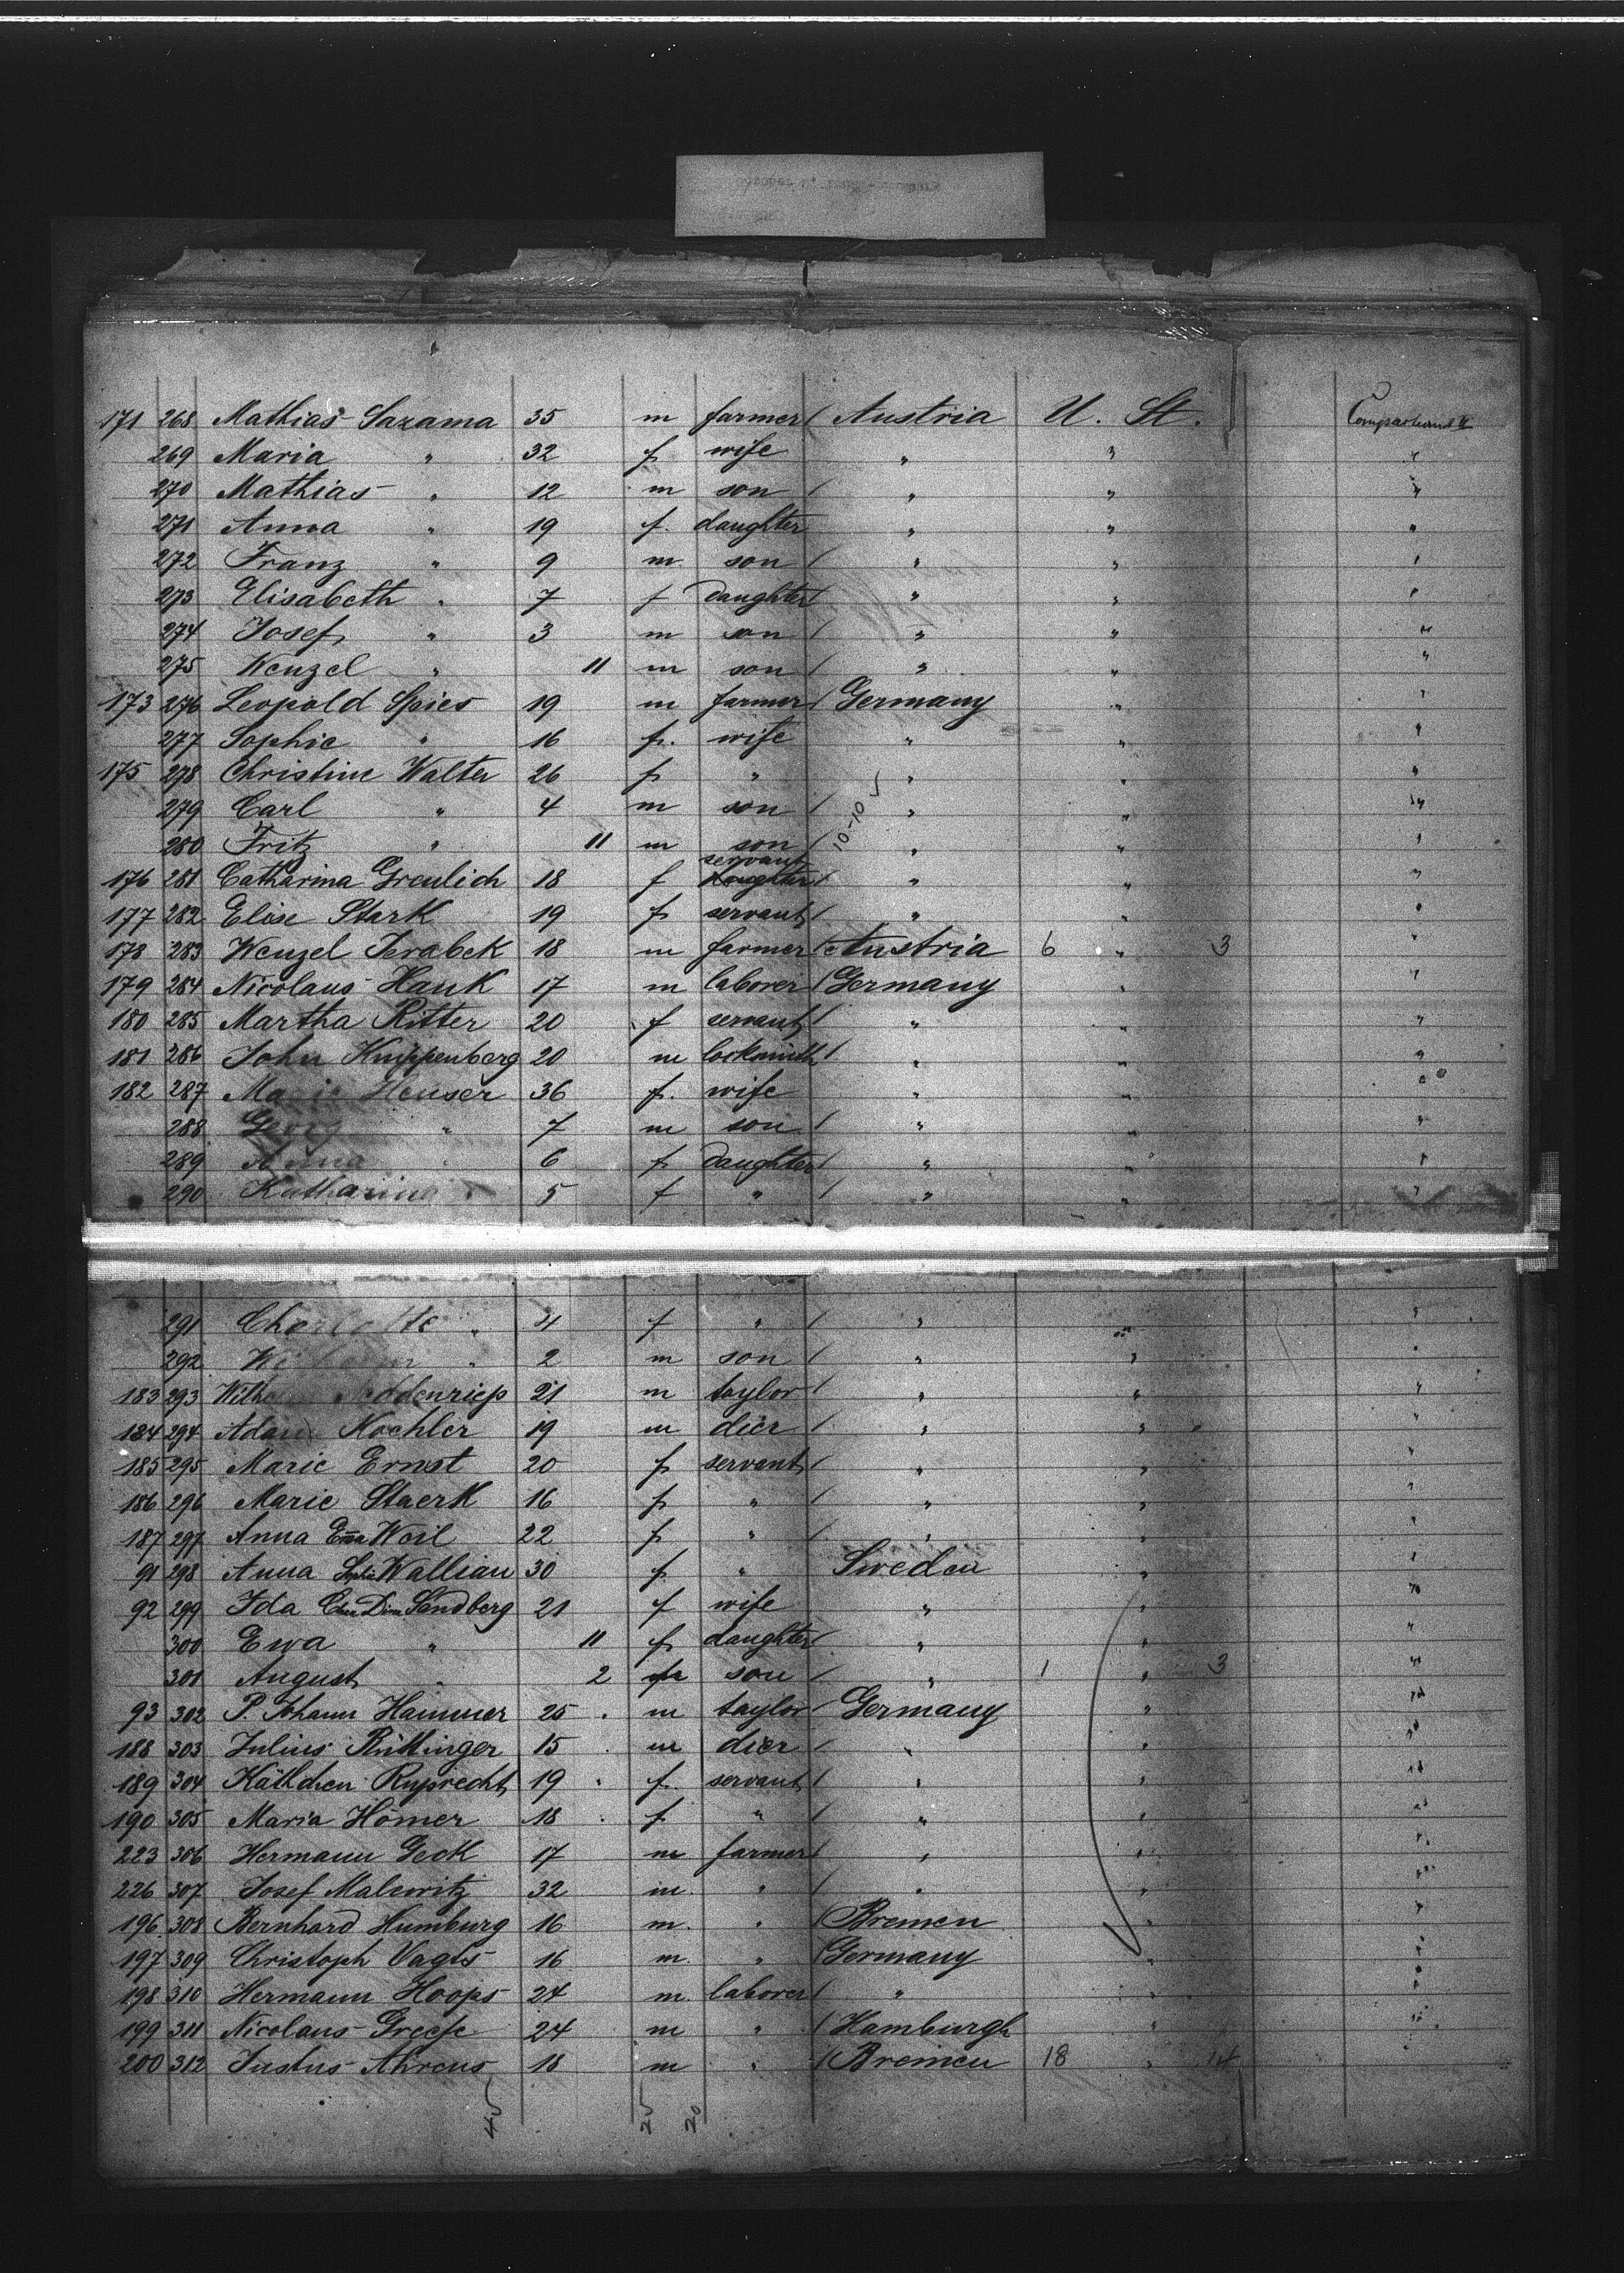 171 268 Mathias Sazama 35 m farmer / Austria U. St. Compartement II
269 Maria " 32 f wife " " "
270 Mathias " 12 m son / " " "
271 Anna " 19 f. daughter " " "
272 Franz " 9 m son / " " "
273 Elisabeth " 7 f daughter / " " "
274 Josef " 3 m son / " " "
275 Wenzel " 11 m son / " " "
173 276 Leopold Spies 19 m farmer / Germany " "
277 Sophie " 16 f. wife " " "
175 278 Christine Walter 26 f " " " "
279 Carl " 4 m son / " " "
10-10 ✓
280 Fritz " 11 m son / " " "
servant
176 281 Catharina Greulich 18 f daughter / " " "
177 282 Elise Stark 19 f servant / " " "
178 283 Wenzel Jerabek 18 m farmer / Austria 6 " 3 "
179 284 Nicolaus Hauk 17 m laborer / Germany " "
180 285 Martha Ritter 20 f servant / " " "
181 286 John Knippenberg 20 m locksmith / " " "
182 287 Marie Heuser 36 f. wife " " "
288 Georg " 7 m son / " " "
289 Anna " 6 f daughter / " " "
290 Katharina " 5 f " / " " "
291 Charlotte " 4 f " / " " "
292 " 2 m son / " " "
183 293 21 m taylor / " " "
184 294 Adam Koehler 19 m dier / " " "
185 295 Marie Ernst 20 f servant / " " "
186 296 Marie Staerk 16 f " / " " "
187 297 Anna Emma Weil 22 f " / " " "
91 298 Anna Sophie Wallian 30 f. " Sweden " "
92 299 Ida Sandberg 21 f wife " " "
300 Ewa " 11 f daughter / " " "
301 August " 2 m son / " 1 " 3 "
93 302 P. Johann Hammer 25 m taylor / Germany " "
188 303 Julius Rüttinger 15 m dier / " " "
189 304 Käthchen Ruprecht 19 f. servant / " " "
190 305 Maria Hömer 18 f " / " " "
223 306 Hermann Geck 17 m farmer / " " "
226 307 Josef Malewitz 32 m. " / " " "
196 308 Bernhard Humburg 16 m. " / Bremen " "
197 309 Christoph Vagts 16 m. " / Germany " "
198 310 Hermann Hoops 24 m. laborer / " " "
199 311 Nicolaus Greefe 24 m " / Hamburgh " "
200 312 Justus Ahrens 18 m " / Bremen 18 " 14
45 25 20